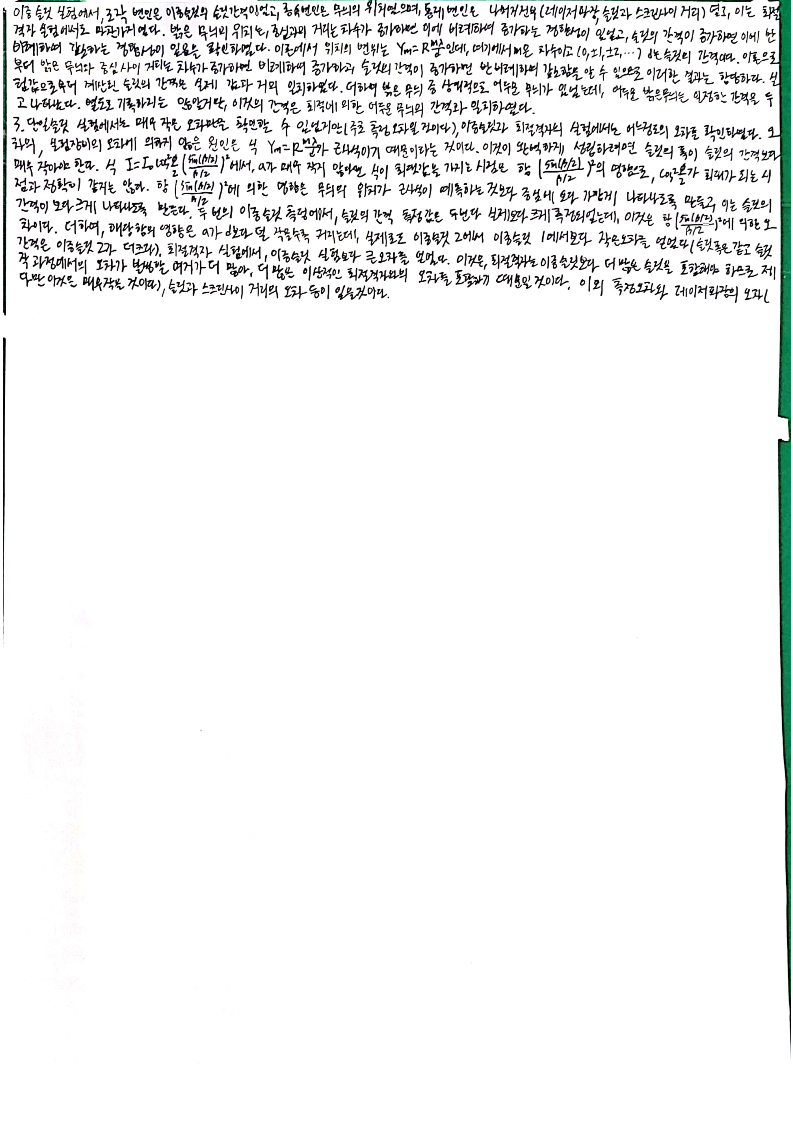 이중슬릿 실험에서, 조작 변인은 이중슬릿의 슬릿간격이었고, 종속변인은 무늬의 위치였으며, 통제 변인은 나머지전부(레이저파장, 슬릿과 스크린사이 거리)였고, 이는 회절
격자 실험에서도 마찬가지였다. 밝은 무늬의 위치는, 중심과의 거리는 차수가 증가하면 이에 비례하여 증가하는 경향성이 있었고, 슬릿의 간격이 증가하면 이에 반
비례하여 감소하는 경향성이 있음을 확인하였다. 이론에서 위치의 변위는 Ym=R mλ/d 인데, 여기에서 m은 차수이고(0,±1,±2,⋯) d는 슬릿의 간격이다. 이론으로
부터 밝은 무늬와 중심 사이 거리는 차수가 증가하면 비례하여 증가하고, 슬릿의 간격이 증가하면 반비례하여 감소함을 알 수 있으므로 이러한 결과는 합당하다. 실
험값으로부터 계산된 슬릿의 간격은 실제 값과 거의 일치하였다. 더하여 밝은 무늬 중 상대적으로 어두운 무늬가 있었는데, 어두운 밝은무늬는 일정한 간격을 두
고 나타났다. 별도로 기록하지는 않았지만, 이것의 간격은 회절에 의한 어두운 무늬의 간격과 일치하였다.
3. 단일슬릿 실험에서는 매우 작은 오차만을 확인할 수 있었지만(주로 측정 오차일 것이다), 이중슬릿과 회절격자의 실험에서는 어느정도의 오차를 확인하였다. 오
차의, 실험장비의 오차에 의하지 않은 원인은 식 Ym=R mλ/d가 근사식이기 때문이라는 것이다. 이것이 완벽하게 성립하려면 슬릿의 폭이 슬릿의 간격보다
매우 작아야 한다. 식 I=I₀cos²φ/2 (sin(β/2)/β/2)²에서, a가 매우 작지 않다면 식이 최댓값을 가지는 시점은 항 (sin(β/2)/β/2)²의 영향으로, cos²φ/2가 최대가 되는 시
점과 정확히 같지는 않다. 항 (sin(β/2)/β/2)²에 의한 영향은 무늬의 위치가 근사식이 예측하는 것보다 중심에 보다 가깝게 나타나도록 만들고, 이는 슬릿의
간격이 보다 크게 나타나도록 만든다. 두 번의 이중슬릿 측정에서, 슬릿의 간격 측정값은 두번다 실제보다 크게 측정되었는데, 이것은 항 (sin(β/2)/β/2)²에 의한 오
차이다. 더하여, 해당항의 영향은 a가 d보다 덜 작을수록 커지는데, 실제로도 이중슬릿 2에서 이중슬릿 1에서보다 작은오차를 얻었다(슬릿폭은 같고 슬릿
간격은 이중슬릿 2가 더크다). 회절격자 실험에서, 이중슬릿 실험보다 큰오차를 얻었다. 이것은, 회절격자는 이중슬릿보다 더 많은 슬릿을 포함해야 하므로, 제
작 과정에서의 오차가 발생할 여지가 더 많아, 더 많은 이상적인 회절격자와의 오차를 포함하기 때문일 것이다. 이외 측정오차와, 레이저파장의 오차(
다만 이것은 매우작을 것이다), 슬릿과 스크린사이 거리의 오차 등이 있을것이다.